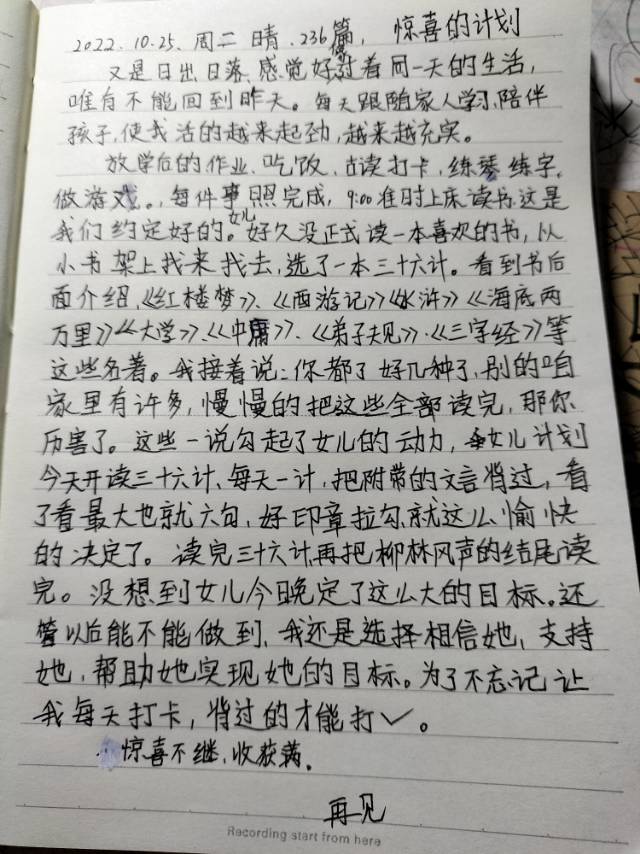 2022.10.25.周二 晴.236篇, 惊喜的计划
又是日出日落,感觉好像过着同一天的生活,
唯有不能回到昨天。每天跟随家人学习,陪伴
孩子,使我活的越来起劲,越来越充实。
放学后的作业、吃饭、古读打卡,练琴练字,
做游戏。,每件事照完成,9:00准时上床读书,这是
我们约定好的。女儿好久没正式读一本喜欢的书,从
小书架上找来找去,选了一本三十六计。看到书后
面介绍,《红楼梦》、《西游记》《水浒》《海底两
万里》《大学》、《中庸》、《弟子夫见》·《三字经》等
这些名著。我接着说:你都了好几种了,别的咱
家里有许多,慢慢的把这些全部读完,那你
厉害了。这些一说勾起了女儿的动力,女儿计划
今天开读三十六计、每天一计,把附带的文言背过,看
了看最大也就六句,好印章拉勾,就这么愉快
的决定了。读完三十六计,再把柳林风声的结尾读
完。没想到女儿今晚定了这么大的目标。还
管以后能不能做到,我还是选择相信她,支持
她,帮助她实现她的目标。为了不忘记让
我每天打卡,背过的才能打✓。
惊喜不继,收获满。
再见
Recording start from here